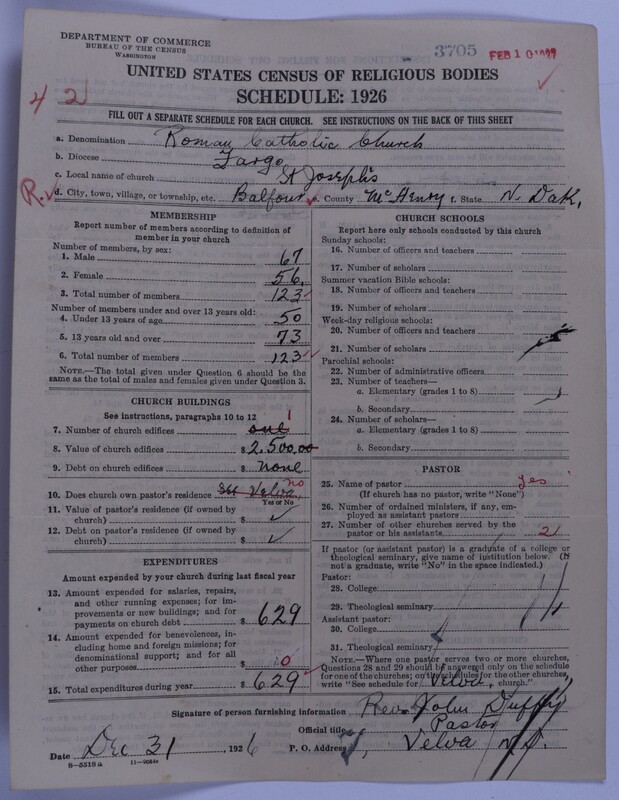 DEPARTMENT OF COMMERCE
BUREAU OF THE CENSUS
WASHINGTON
3705
FEB 10 1927
UNITED STATES CENSUS OF RELIGIOUS BODIES
SCHEDULE: 1926
4 2
FILL OUT A SEPARATE SCHEDULE FOR EACH CHURCH. SEE INSTRUCTIONS ON THE BACK OF THIS SHEET
a. Denomination Roman Catholic Church
b. Diocese Fargo
c. Local name of church St Joseph's
R. d. City, town, village, or township, etc. Balfour e. County McHenry f. State N. Dak.
MEMBERSHIP
Report number of members according to definition of
member in your church
Number of members, by sex:
1. Male 67
2. Female 56
3. Total number of members 123
Number of members under and over 13 years old:
4. Under 13 years of age 50
5. 13 years old and over 73
6. Total number of members 123
NOTE.—The total given under Question 6 should be the
same as the total of males and females given under Question 3.
CHURCH BUILDINGS
See instructions, paragraphs 10 to 12
7. Number of church edifices one 1
8. Value of church edifices $ 2,500.00
9. Debt on church edifices $ none
10. Does church own pastor's residence See Velva no
Yes or No
11. Value of pastor's residence (if owned by
church) $ ✓
12. Debt on pastor's residence (if owned by
church) $ ✓
EXPENDITURES
Amount expended by your church during last fiscal year
13. Amount expended for salaries, repairs,
and other running expenses; for im-
provements or new buildings; and for
payments on church debt $ 629
14. Amount expended for benevolences, in-
cluding home and foreign missions; for
denominational support; and for all
other purposes $ 0
15. Total expenditures during year $ 629
CHURCH SCHOOLS
Report here only schools conducted by this church
Sunday schools:
16. Number of officers and teachers
17. Number of scholars
Summer vacation Bible schools:
18. Number of officers and teachers
19. Number of scholars
Week-day religious schools:
20. Number of officers and teachers
21. Number of scholars
Parochial schools:
22. Number of administrative officers
23. Number of teachers—
a. Elementary (grades 1 to 8)
b. Secondary
24. Number of scholars—
a. Elementary (grades 1 to 8)
b. Secondary
PASTOR
25. Name of pastor yes
(If church has no pastor, write "None")
26. Number of ordained ministers, if any, em-
ployed as assistant pastors
27. Number of other churches served by the
pastor or his assistants 2
If pastor (or assistant pastor) is a graduate of a college or
theological seminary, give name of institution below. (If
not a graduate, write "No" in the space indicated.)
Pastor:
28. College
29. Theological seminary
Assistant pastor:
30. College
31. Theological seminary
NOTE.—Where one pastor serves two or more churches,
Questions 28 and 29 should be answered only on the schedule
for one of the churches; on the schedules for the other churches,
write "See schedule for Velva church."
Signature of person furnishing information Rev. John Duffy
Official title Pastor
Date Dec 31, 1926 P. O. Address Velva N.D.
8—5518 a